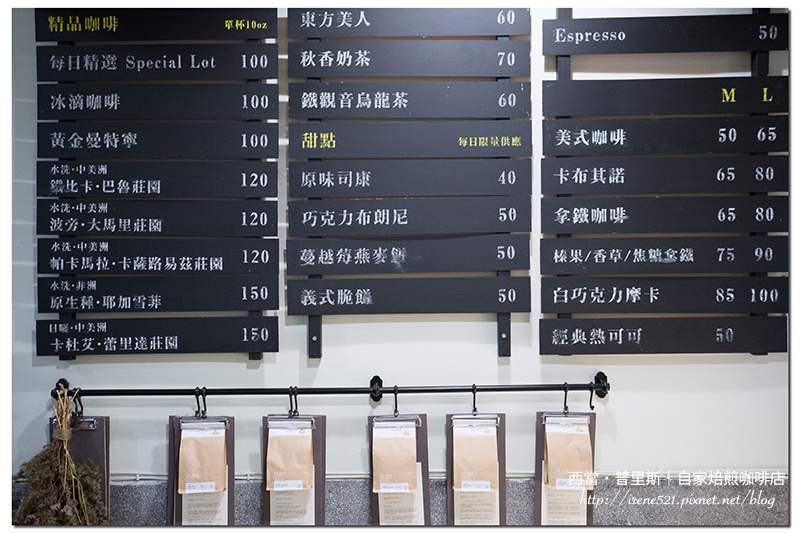 精品咖啡 單杯10oz
每日精選 Special Lot 100
冰滴咖啡 100
黃金曼特寧 100
水洗·中美洲
鐵比卡·巴魯莊園 120
水洗·中美洲
波旁·大馬里莊園 120
水洗·中美洲
帕卡馬拉·卡薩路易茲莊園 120
水洗·非洲
原生種·耶加雪菲 150
日曬·中美洲
卡杜艾·蕾里達莊園 150
東方美人 60
秋香奶茶 70
鐵觀音烏龍茶 60
甜點 每日限量供應
原味司康 40
巧克力布朗尼 50
蔓越莓燕麥餅 50
義式脆餅 50
Espresso 50
M L
美式咖啡 50 65
卡布其諾 65 80
拿鐵咖啡 65 80
榛果/香草/焦糖拿鐵 75 90
白巧克力摩卡 85 100
經典熱可可 50
西當·普里斯|自家焙煎咖啡店
http://irene521.pixnet.net/blog